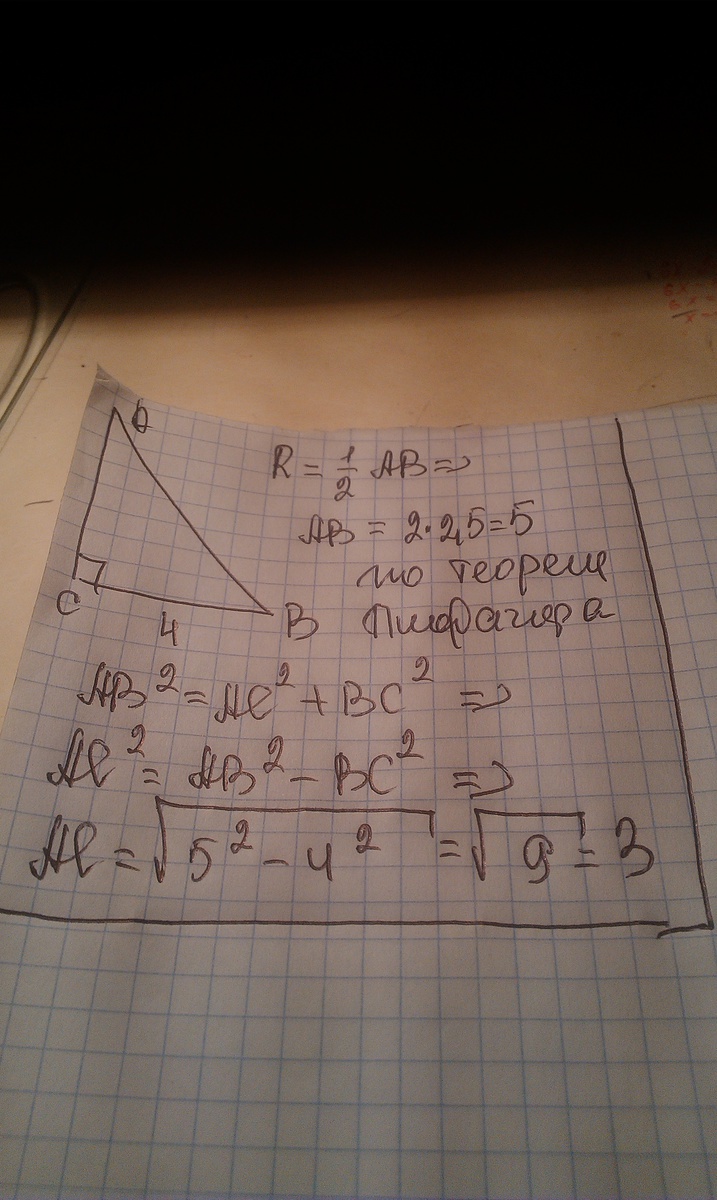 A
R = 1/2 AB =>
AB = 2·2,5=5
по теореме
Пифагора
C
4
B
AB² = AC² + BC² =>
AC² = AB² - BC² =>
AC = √5² - 4² = √9 = 3